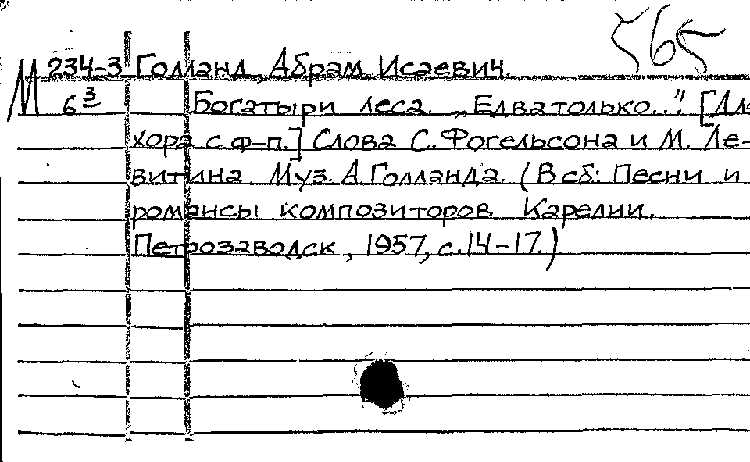 565
М 234-3 Голланд, Абрам Исаевич.
6 3 Богатыри леса. „Едва только..." [Для
хора с ф-п.] Слова С. Фогельсона и М. Ле-
витина. Муз. А. Голланда. (В сб: Песни и
романсы композиторов Карелии.
Петрозаводск, 1957, с. 14-17.)